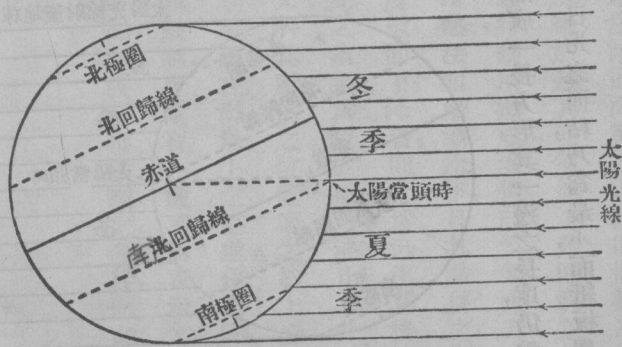 北極圈
北回歸線
赤道
南北回歸線
南極圈
冬季
太陽當頭時
夏季
太陽光線